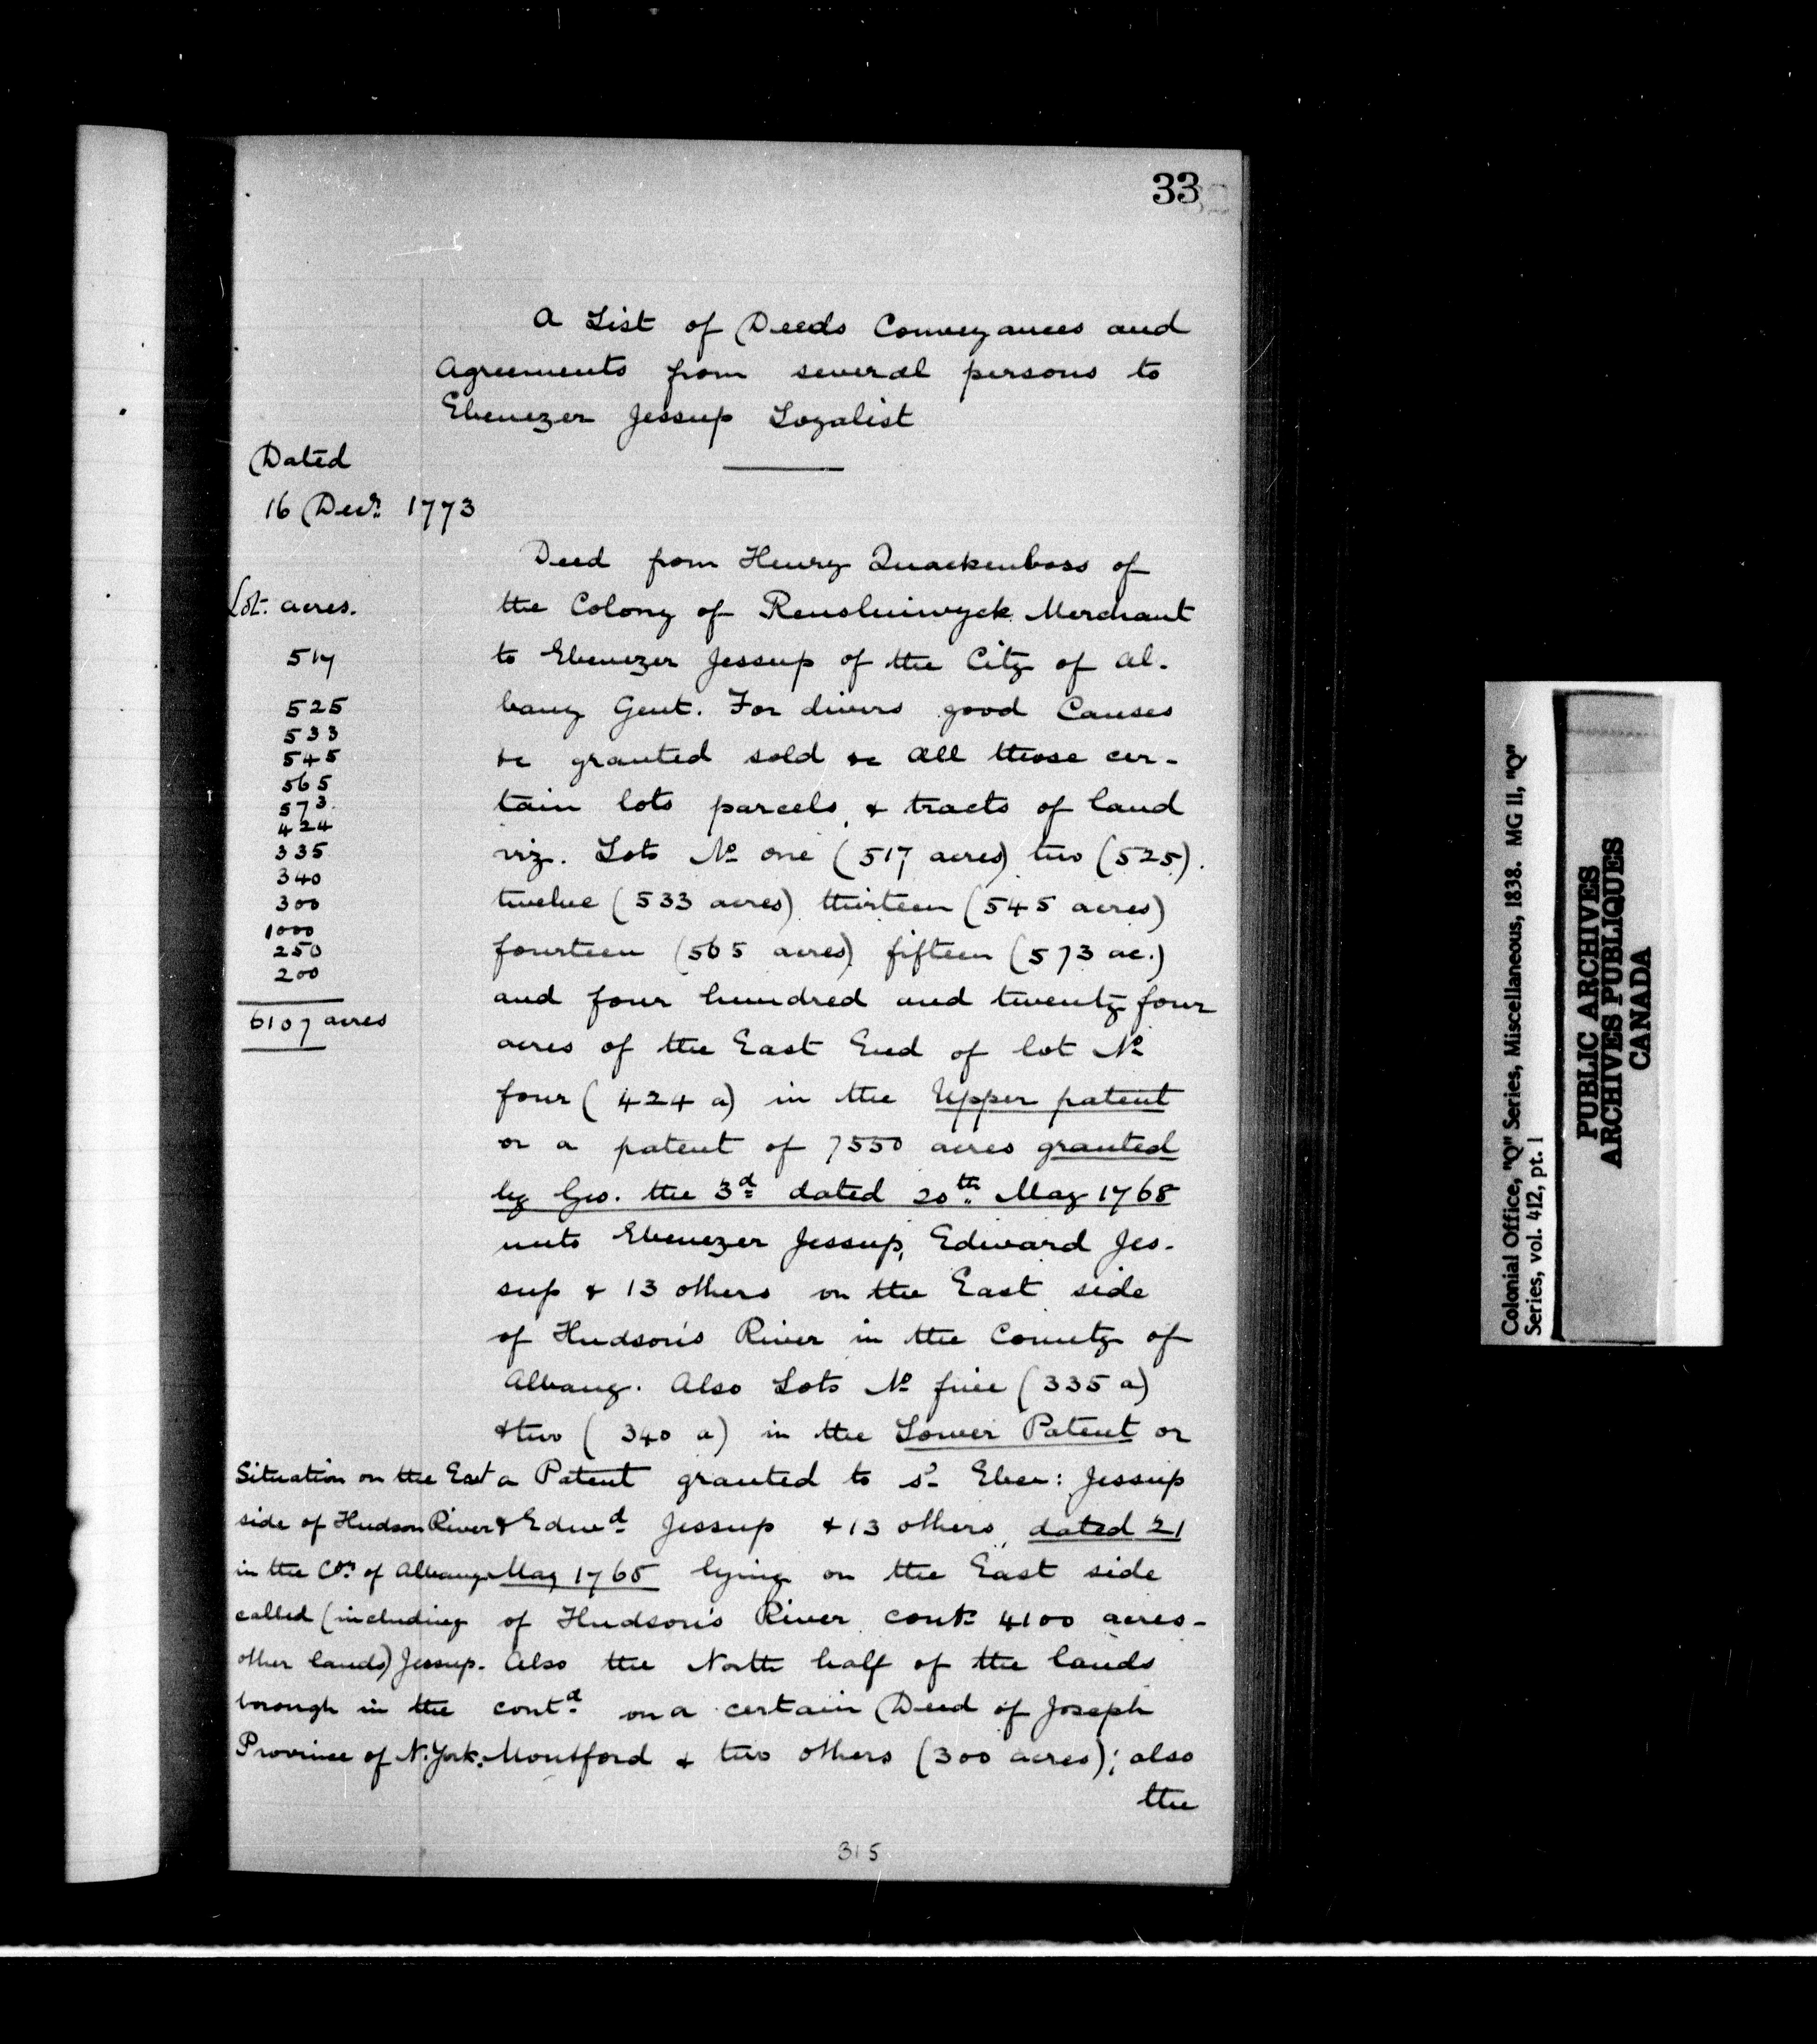 33
A List of Deeds Conveyances and
Agreements from several persons to
Ebenezer Jessup Loyalist
Dated
16 Decr. 1773
Lot. acres.
517
525
533
545
565
573
424
335
340
300
1000
250
200
6107 acres
Deed from Henry Quackenboss of
the Colony of Rensluiwyck Merchant
to Ebenezer Jessup of the City of Al-
bany Gent. For divers good Causes
&c granted sold &c All those cer-
tain lots parcels, & tracts of land
viz. Lots No one (517 acres) two (525).
twelve (533 acres) thirteen (545 acres)
fourteen (565 acres) fifteen (573 ac.)
and four hundred and twenty four
acres of the East End of lot No
four (424 a) in the Upper patent
or a patent of 7550 acres granted
by Geo. the 3d dated 20th May 1768
unto Ebenezer Jessup, Edward Jes-
sup & 13 others on the East side
of Hudson's River in the County of
Albany. Also Lots No five (335 a)
& two (340 a) in the Lower Patent or
a Patent granted to sd Eben: Jessup
& Edwd Jessup & 13 others, dated 21
May 1768 lying on the East side
of Hudson's River cont. 4100 acres-
Also the North half of the lands
contd on a certain Deed of Joseph
Montford & two others (300 acres); also
the
Situation on the East
side of Hudson River
in the Coy of Albany
called (including
other lands) Jessup-
borough in the
Province of N. York.
315
Colonial Office, "Q" Series, Miscellaneous, 1838. MG 11, "Q"
Series, vol. 412, pt. 1
PUBLIC ARCHIVES
ARCHIVES PUBLIQUES
CANADA